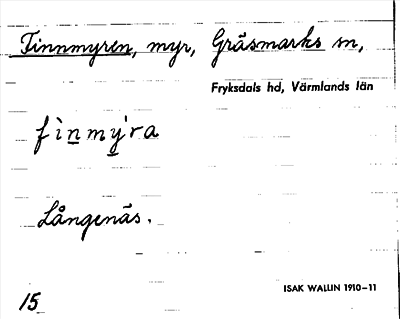 Finnmyren, myr, Gräsmarks sn,
Fryksdals hd, Värmlands län
fìn̲mỳ̲ra
Långenäs.
ISAK WALLIN 1910–11
15